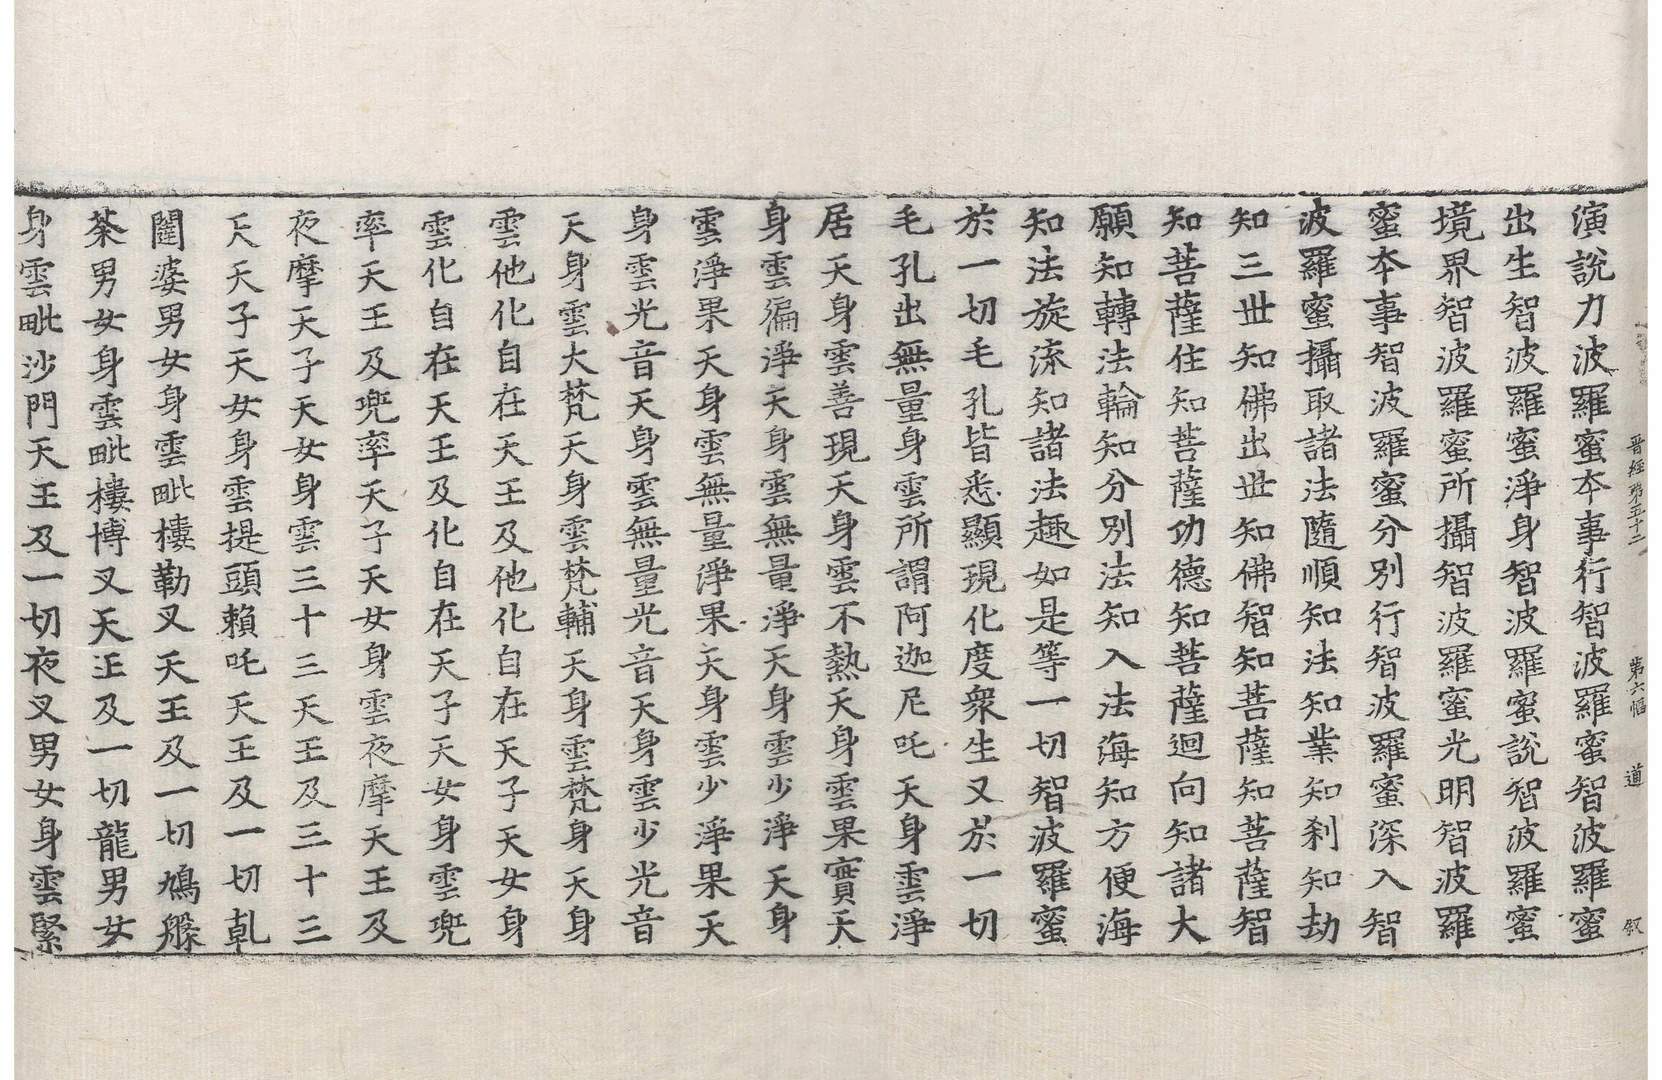 晋經 第五十二 第六幅 道 釵
演說力波羅蜜夲事行智波羅蜜智波羅蜜
出生智波羅蜜淨身智波羅蜜說智波羅蜜
境界智波羅蜜所攝智波羅蜜光明智波羅
蜜夲事智波羅蜜分別行智波羅蜜深入智
波羅蜜攝取諸法隨順知法知業知刹知劫
知三世知佛出世知佛智知菩薩知菩薩智
知菩薩住知菩薩功德知菩薩迴向知諸大
願知轉法輪知分別法知入法海知方便海
知法旋流知諸法趣如是等一切智波羅蜜
於一切毛孔皆悉顯現化度衆生又於一切
毛孔出無量身雲所謂阿迦尼吒天身雲淨
居天身雲善現天身雲不熱天身雲果實天
身雲徧淨天身雲無量淨天身雲少淨天身
雲淨果天身雲無量淨果天身雲少淨果天
身雲光音天身雲無量光音天身雲少光音
天身雲大梵天身雲梵輔天身雲梵身天身
雲他化自在天王及他化自在天子天女身
雲化自在天王及化自在天子天女身雲兜
率天王及兜率天子天女身雲夜摩天王及
夜摩天子天女身雲三十三天王及三十三
天天子天女身雲提頭賴吒天王及一切乹
闥婆男女身雲毗樓勒叉天王及一切鳩槃
茶男女身雲毗樓博叉天王及一切龍男女
身雲毗沙門天王及一切夜叉男女身雲緊